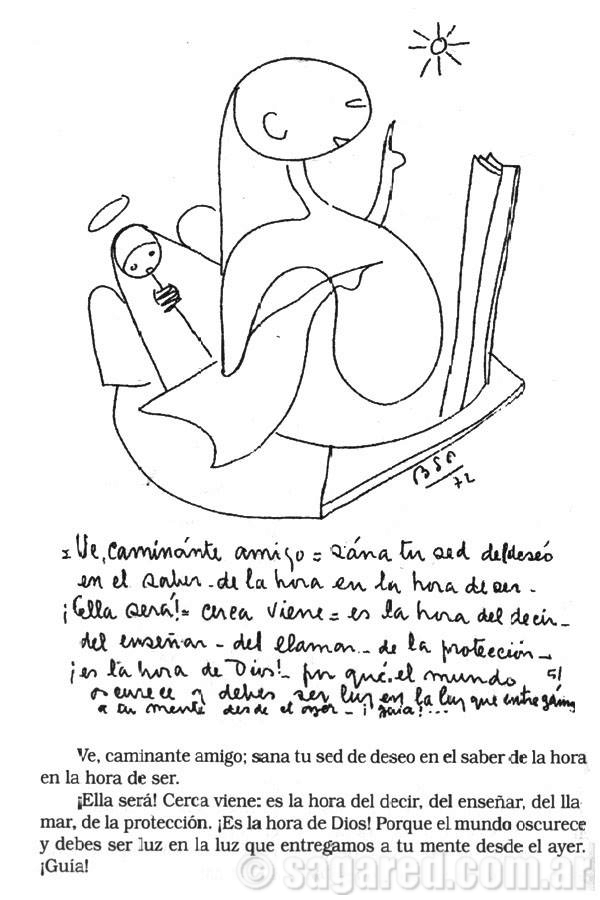 BSP
72
= Ve, caminánte amigo = sána tu sed del deseó
en el saber - de la hora en la hora de ser -
¡Ella será! = cerca viene = es la hora del decir -
del enseñar - del llamar - de la protección -
¡es la hora de Dios! - por qué el mundo
oscurece y debes ser luz en la luz que entregámos
a tu mente desde el ayer - ¡guía!...
Ve, caminante amigo; sana tu sed de deseo en el saber de la hora
en la hora de ser.
¡Ella será! Cerca viene: es la hora del decir, del enseñar, del lla
mar, de la protección. ¡Es la hora de Dios! Porque el mundo oscurece
y debes ser luz en la luz que entregamos a tu mente desde el ayer.
¡Guía!
© sagared.com.ar